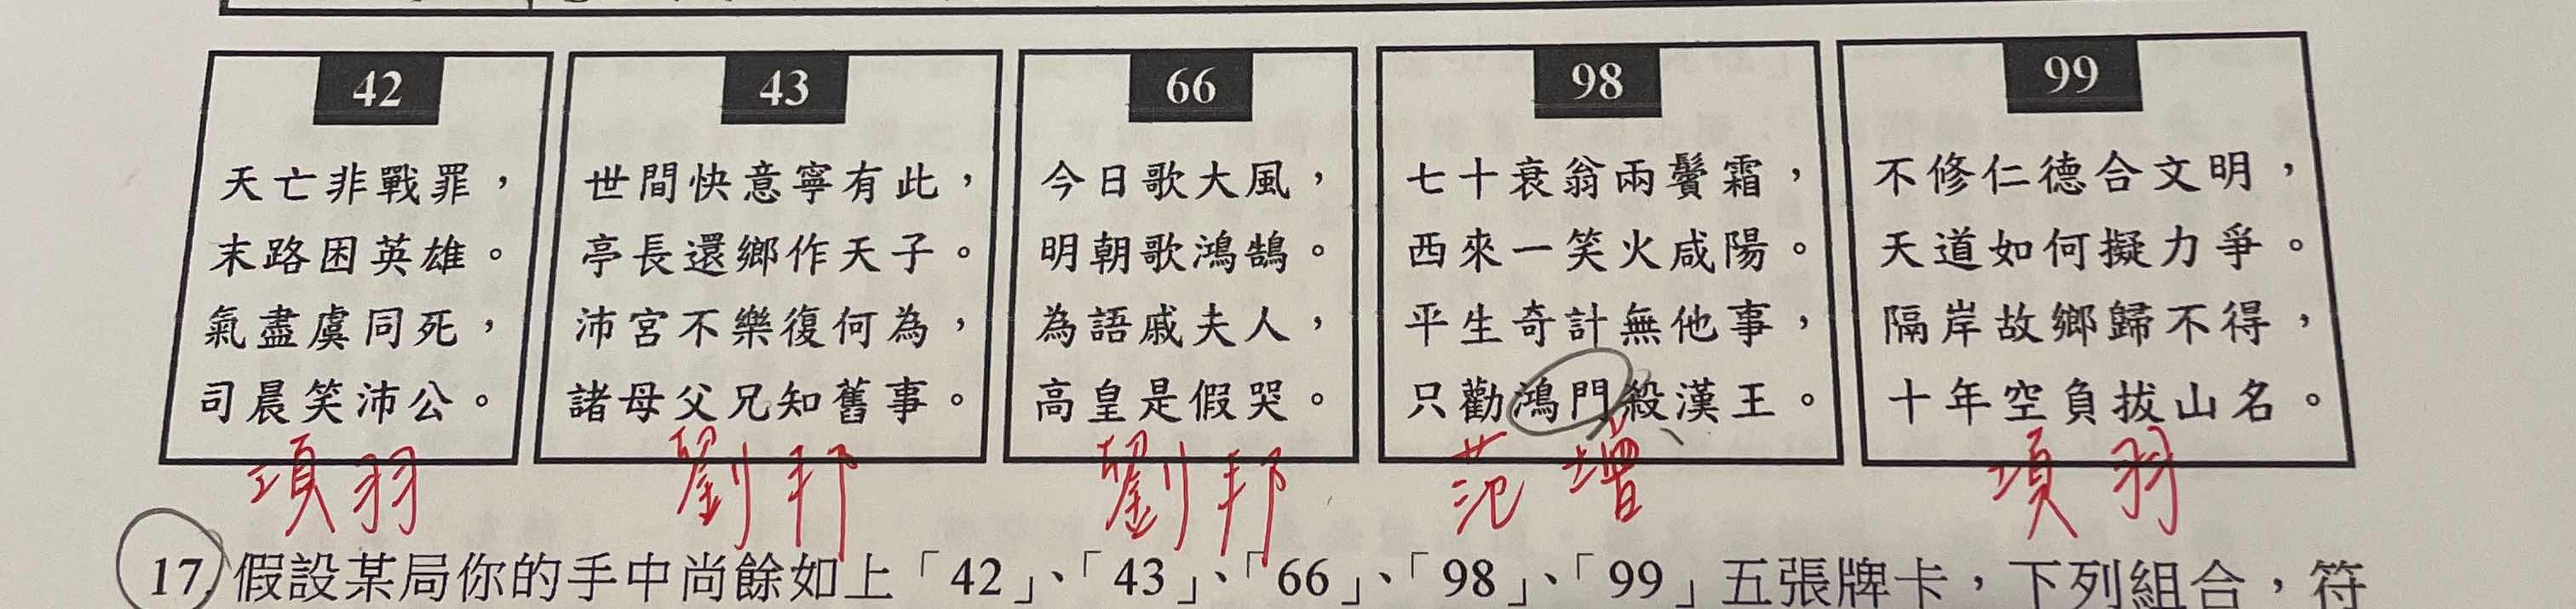 42
天亡非戰罪，
末路困英雄。
氣盡虞同死，
司晨笑沛公。
項羽
43
世間快意寧有此，
亭長還鄉作天子。
沛宮不樂復何為，
諸母父兄知舊事。
劉邦
66
今日歌大風，
明朝歌鴻鵠。
為語戚夫人，
高皇是假哭。
劉邦
98
七十衰翁兩鬢霜，
西來一笑火咸陽。
平生奇計無他事，
只勸鴻門殺漢王。
范增
99
不修仁德合文明，
天道如何擬力爭。
隔岸故鄉歸不得，
十年空負拔山名。
項羽
17. 假設某局你的手中尚餘如上「42」、「43」、「66」、「98」、「99」五張牌卡，下列組合，符